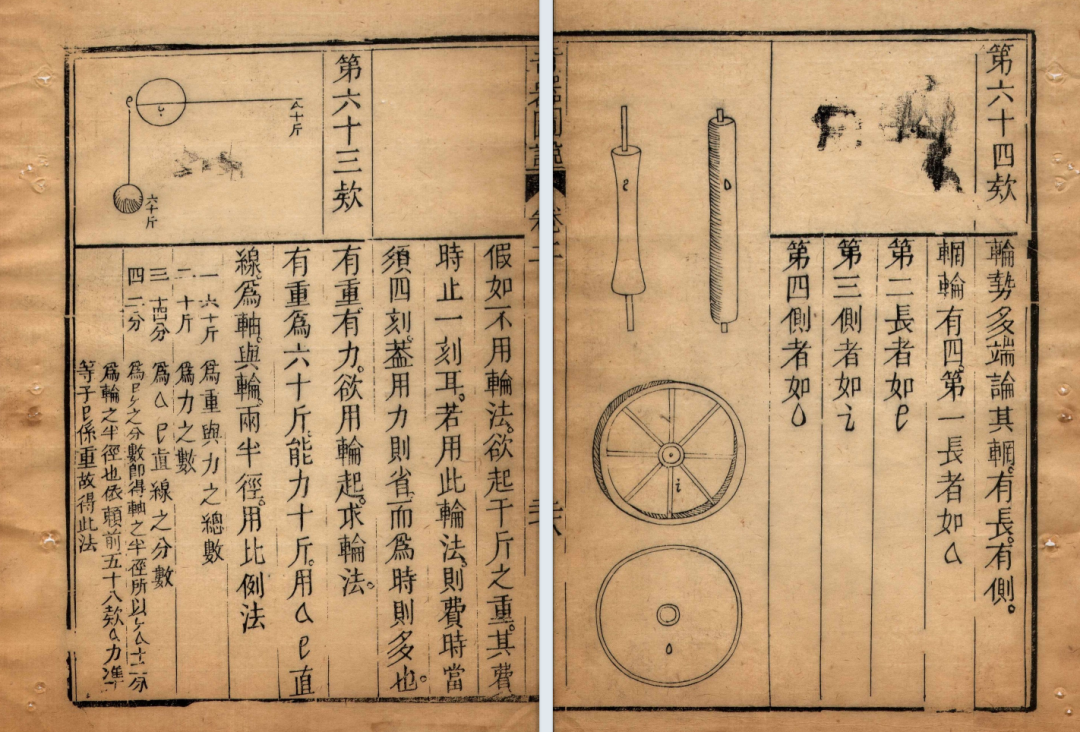 第六十四欵
輪勢多端論其輞。有長。有側。
輞輪有四。第一長者如a
第二長者如e
第三側者如i
第四側者如o
o
e
i
o
卷二
假如不用輪法。欲起千斤之重。其費
時止一刻耳。若用此輪法。則費時當
須四刻。葢用力則省。而爲時則多也。
第六十三欵
a十斤
e
六十斤
有重有力。欲用輪起。求輪法。
有重爲六十斤。能力十斤。用a e直
線。爲軸。與輪。兩半徑。用比例法
一 六十斤 爲重與力之總數
二 十斤 爲力之數
三 十四分 爲a e直線之分數
四 二分 爲e i之分數即得軸之半徑所以i a十二分
爲輪之半徑也依賴前五十八欵a力準
等于e係重故得此法